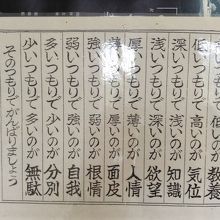 つもりで低いのが教養
低いつもりで高いのが気位
深いつもりで浅いのが知識
浅いつもりで深いのが欲望
厚いつもりで薄いのが人情
薄いつもりで厚いのが面皮
強いつもりで弱いのが根情
弱いつもりで強いのが自我
多いつもりで少いのが分別
少いつもりで多いのが無駄
そのつもりでがんばりましょう